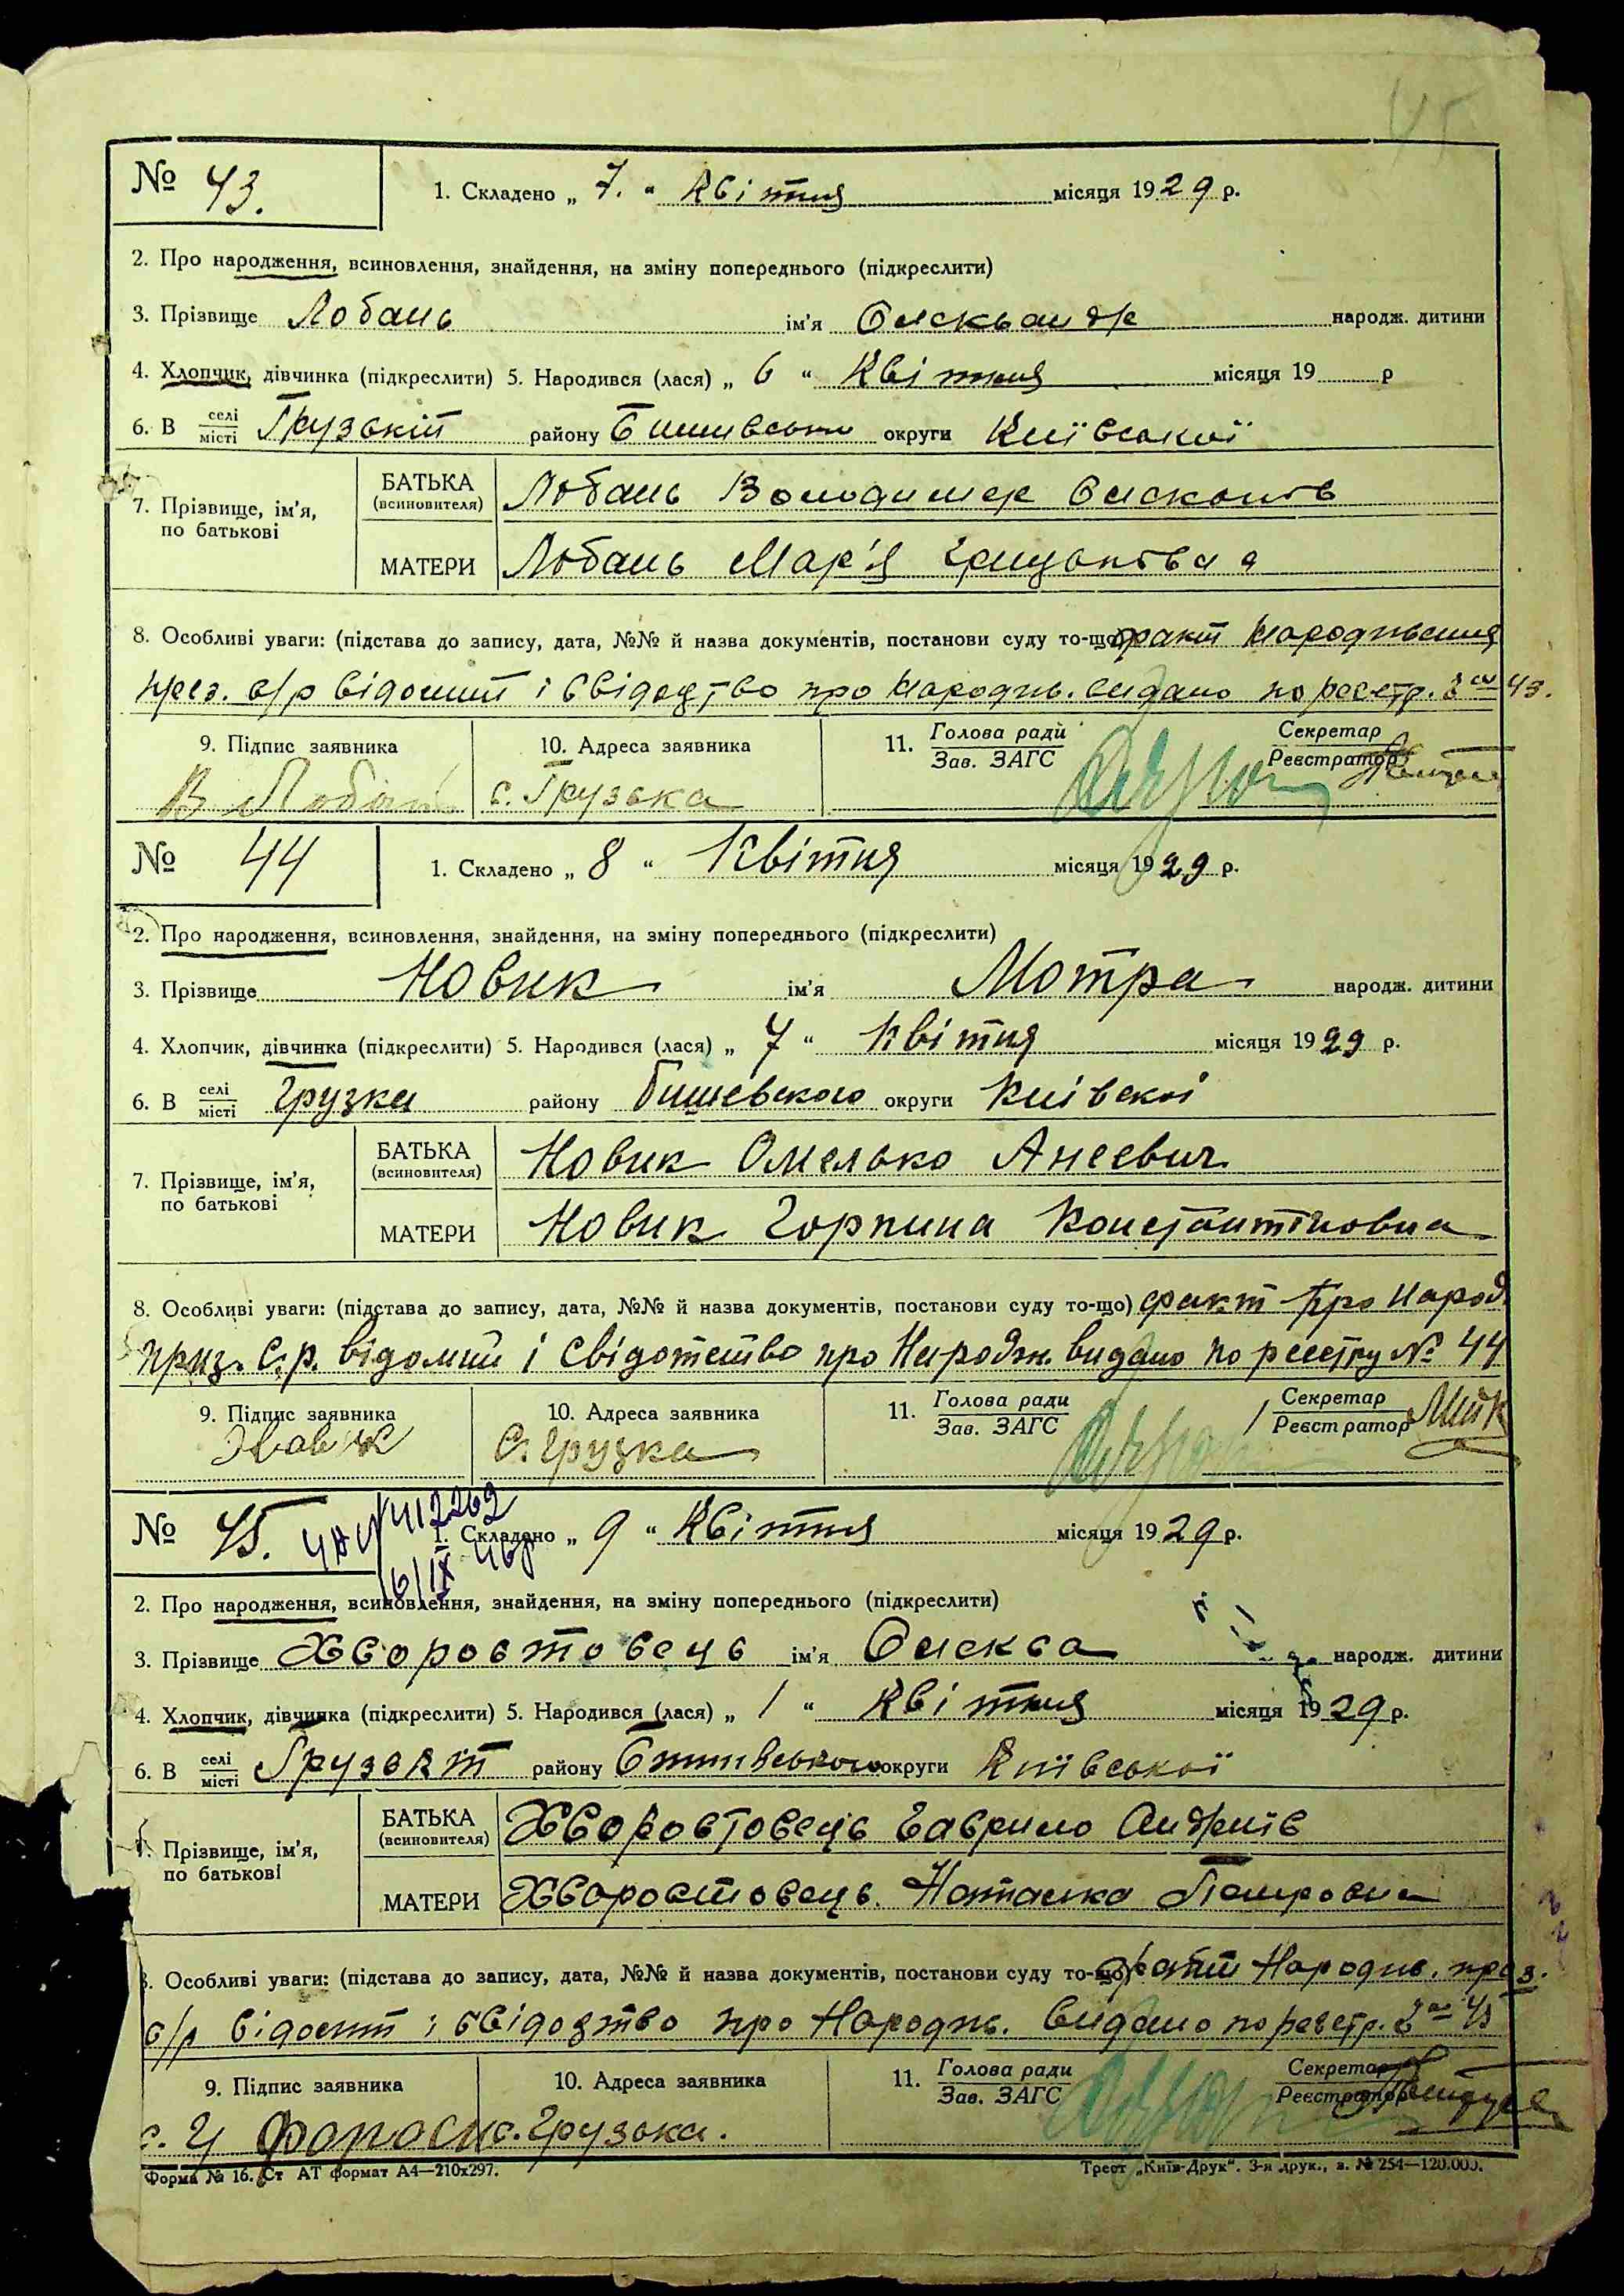 45
№ 43.
1. Складено „ 7. “ Квітня місяця 1929 р.
2. Про народження, всиновлення, знайдення, на зміну попереднього (підкреслити)
3. Прізвище Лобань ім'я народж. дитини
4. Хлопчик, дівчинка (підкреслити) 5. Народився (лася) „ 6 “ Квітня місяця 19 р
6. В селі місті Грузькій району округи Київської
7. Прізвище, ім'я, по батькові
БАТЬКА (всиновителя) Лобань Володимер
МАТЕРИ Лобань Мар'я
8. Особливі уваги: (підстава до запису, дата, №№ й назва документів, постанови суду то-що) факт народження
през. с/р відомий і свідодтво про народж. видано по реєстр. За 43.
9. Підпис заявника 10. Адреса заявника 11. Голова ради Зав. ЗАГС Секретар Реєстратор
В Лобань с. Грузька
№ 44
1. Складено „ 8 “ Квітня місяця 1929 р.
2. Про народження, всиновлення, знайдення, на зміну попереднього (підкреслити)
3. Прізвище Новик ім'я Мотра народж. дитини
4. Хлопчик, дівчинка (підкреслити) 5. Народився (лася) „ 7 “ Квітня місяця 1929 р.
6. В селі місті Грузка району Бишевского округи Киівскоі
7. Прізвище, ім'я, по батькові
БАТЬКА (всиновителя) Новик Омелько
МАТЕРИ Новик Горпина Константіновна
8. Особливі уваги: (підстава до запису, дата, №№ й назва документів, постанови суду то-що) факт про народ.
през. С.р. відомий і Свідотство про Народж. видано по реєстру № 44
9. Підпис заявника 10. Адреса заявника 11. Голова ради Зав. ЗАГС Секретар Реєстратор
Новик С. Грузка
№ 45.
1. Складено „ 9 “ Квітня місяця 1929 р.
2. Про народження, всиновлення, знайдення, на зміну попереднього (підкреслити)
3. Прізвище Хворостовець ім'я Олекса народж. дитини
4. Хлопчик, дівчинка (підкреслити) 5. Народився (лася) „ 1 “ Квітня місяця 1929 р.
6. В селі місті Грузькій району Бишівського округи Київської
7. Прізвище, ім'я, по батькові
БАТЬКА (всиновителя) Хворостовець Гаврило Андріїв
МАТЕРИ Хворостовець Наталка Петровна
8. Особливі уваги: (підстава до запису, дата, №№ й назва документів, постанови суду то-що) факт Народж. през.
с/р відомий і свідодтво про Народж. видано по реєстр. За 45
9. Підпис заявника 10. Адреса заявника 11. Голова ради Зав. ЗАГС Секретар Реєстратор
с. Грузька.
Форма № 16. Ст АТ формат А4—210х297. Трест „Київ-Друк“. 3-я друк., з. № 254—120.000.